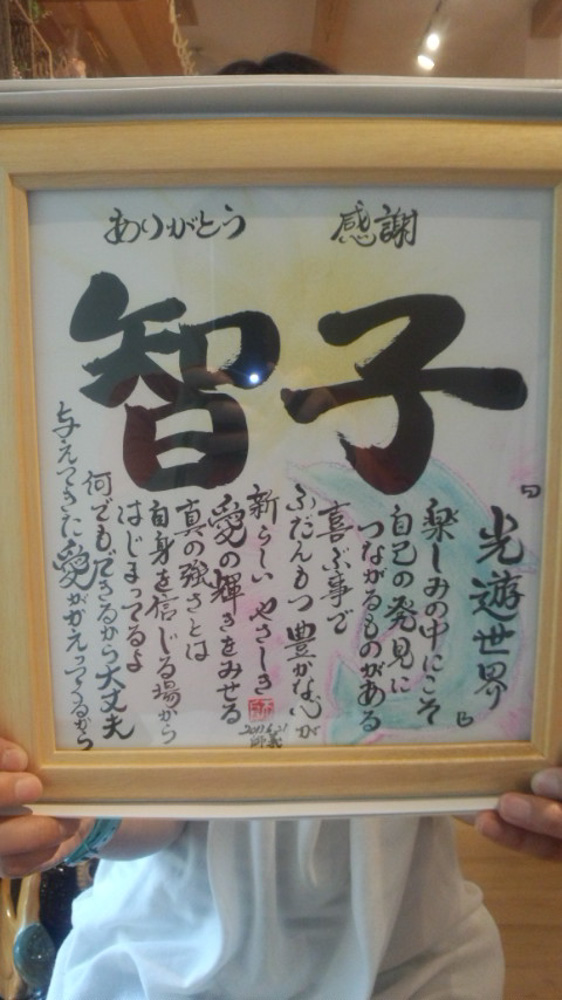 感謝
ありがとう
智子
『光遊世界』
楽しみの中にこそ
自己の発見に
つながるものがある
喜ぶ事で
ふだんもつ豊かな心が
新らしいやさしき
愛の輝きをみせる
真の強さとは
自身を信じる場から
はじまってるよ
何でもできるから大丈夫
与えてきた愛がかえってくるから